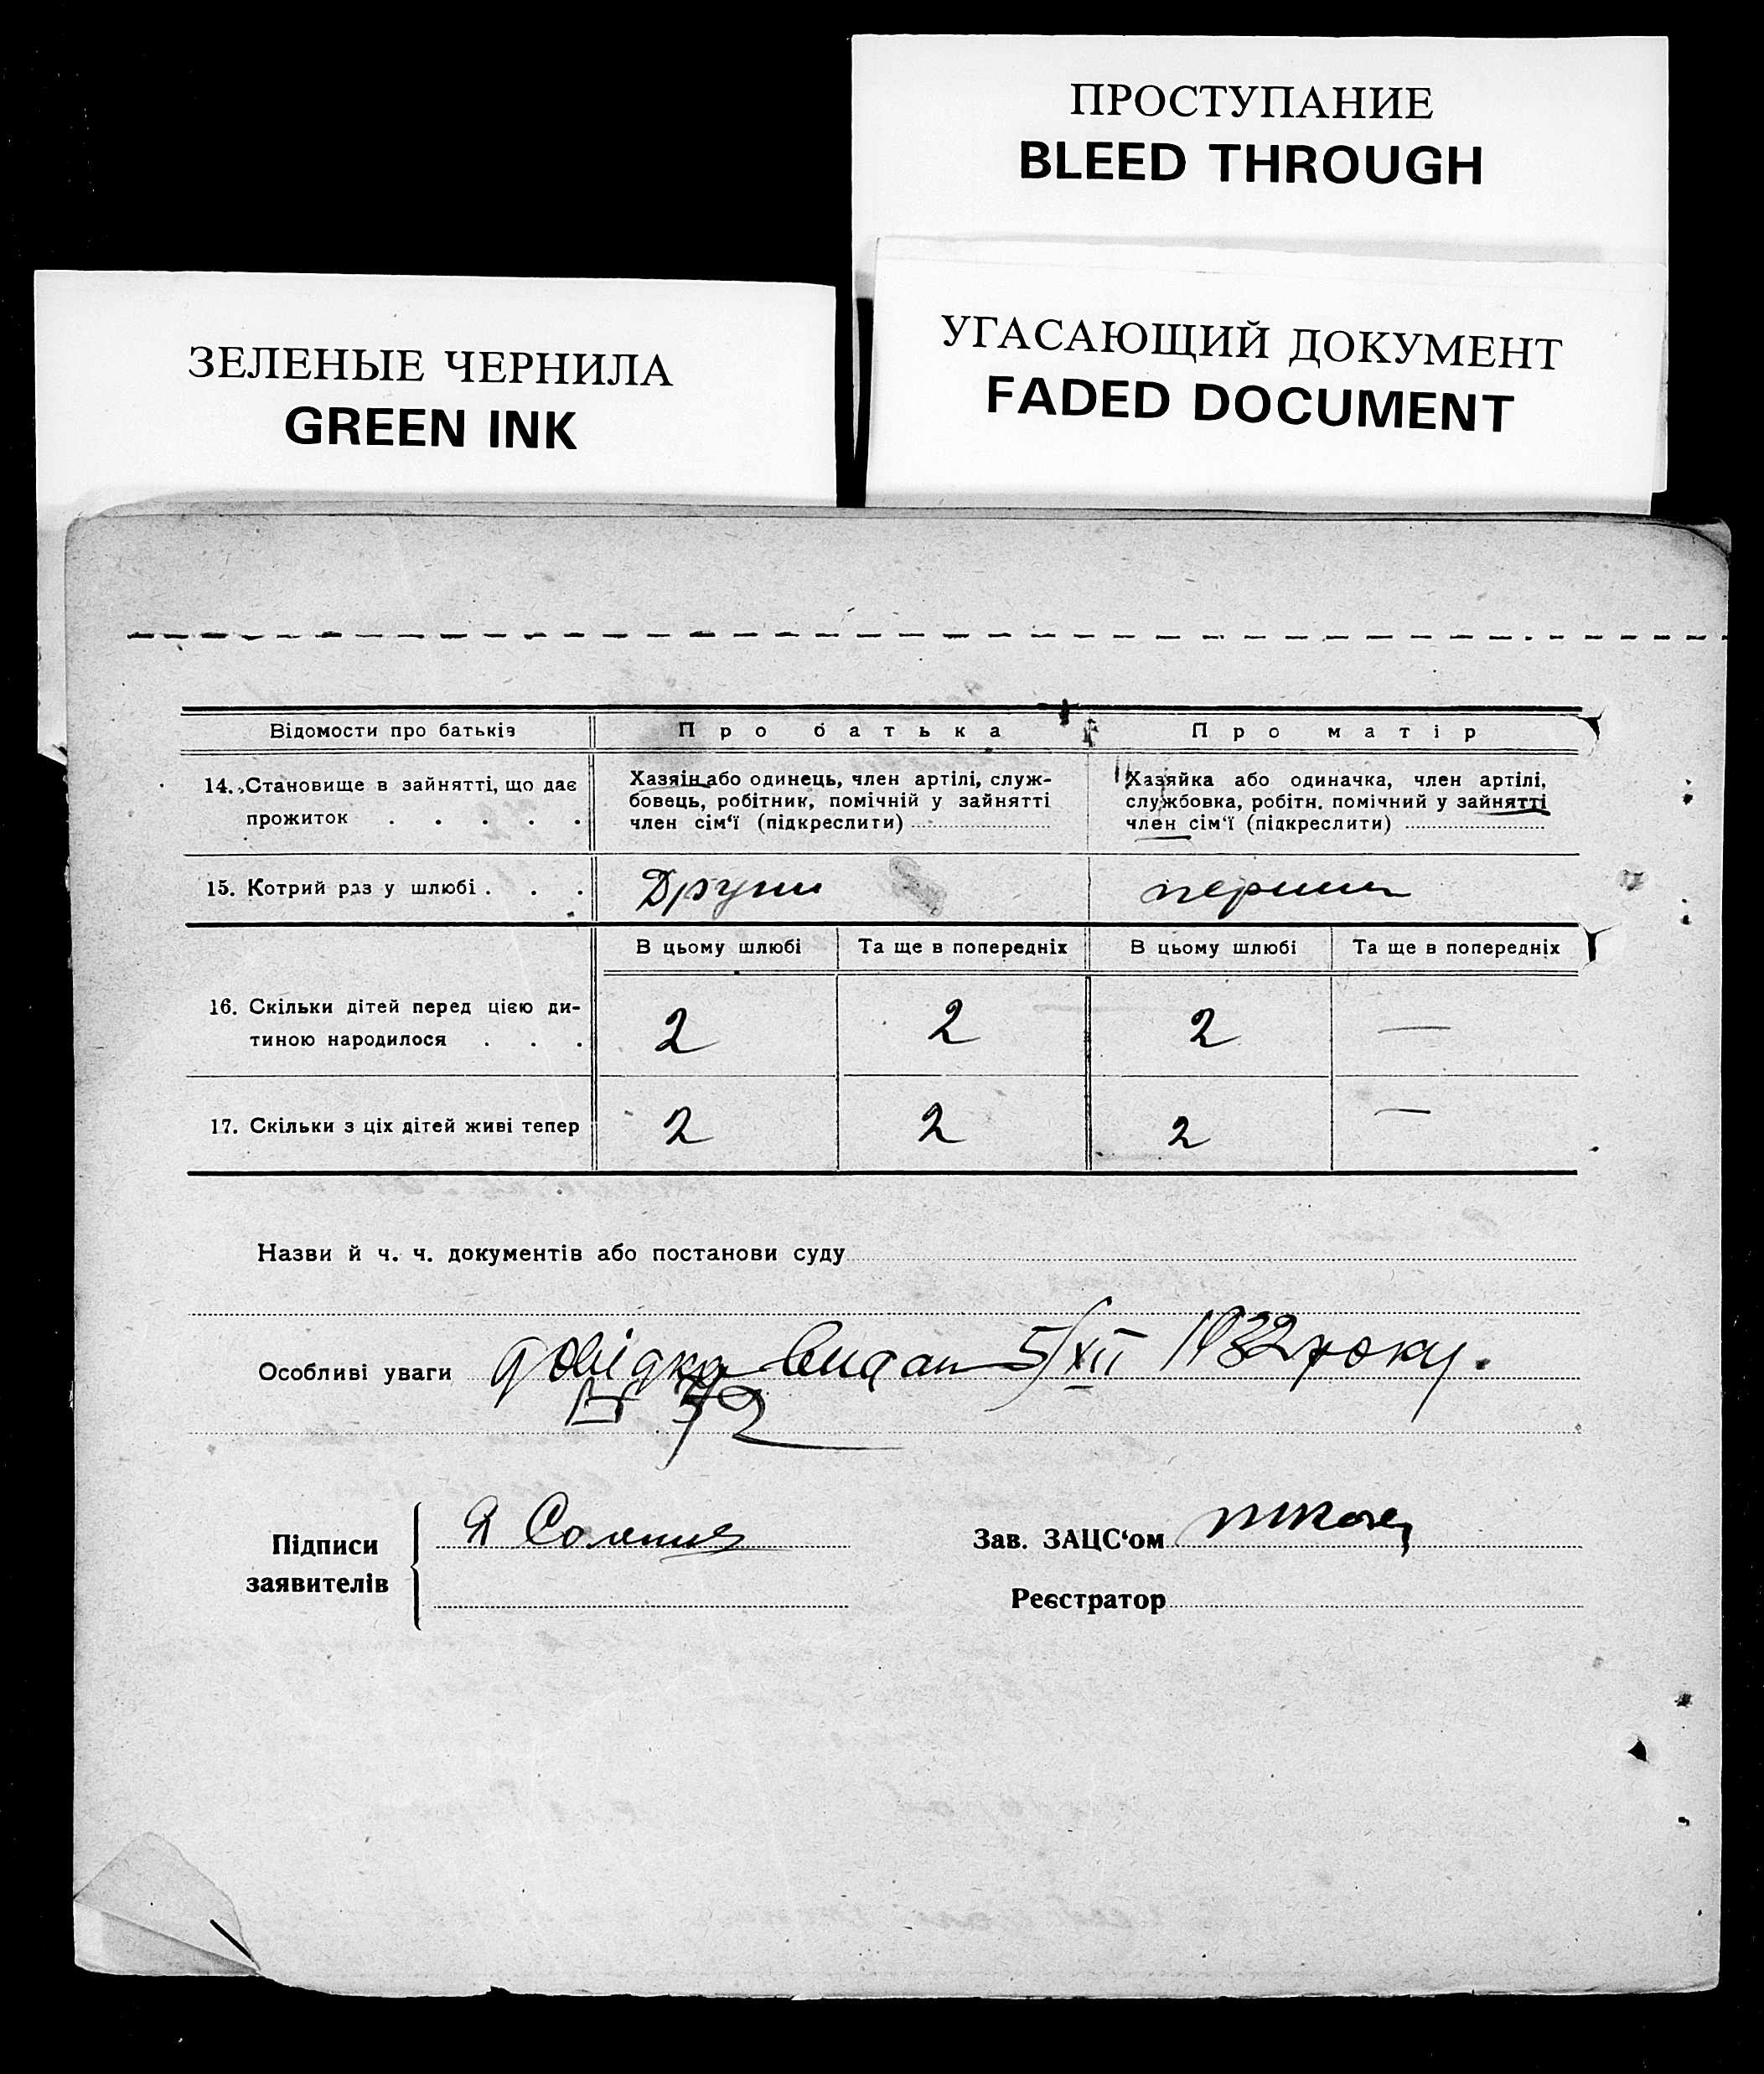 ПРОСТУПАНИЕ
BLEED THROUGH
УГАСАЮЩИЙ ДОКУМЕНТ
FADED DOCUMENT
ЗЕЛЕНЫЕ ЧЕРНИЛА
GREEN INK
Відомости про батьків
Про батька
Про матір
14. Становище в зайнятті, що дає
прожиток . . . . .
Хазяін або одинець, член артілі, служ-
бовець, робітник, помічній у зайнятті
член сім'ї (підкреслити)
Хазяйка або одиначка, член артілі,
службовка, робітн. помічний у зайнятті
член сім'ї (підкреслити)
15. Котрий раз у шлюбі . . .
Други
перши
В цьому шлюбі
Та ще в попередніх
В цьому шлюбі
Та ще в попередніх
16. Скільки дітей перед цією ди-
тиною народилося . . .
2
2
2
—
17. Скільки з ціх дітей живі тепер
2
2
2
—
Назви й ч. ч. документів або постанови суду
Особливі уваги довідка видан 5/XII 1932 року.
72
Підписи
заявителів
Зав. ЗАЦС'ом
Реєстратор